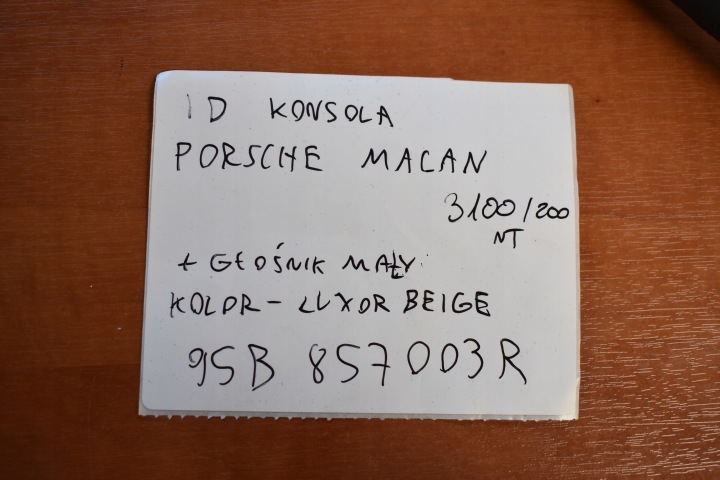 ID KONSOLA
PORSCHE MACAN
3100/200
NT
+ GŁOŚNIK MAŁY
KOLOR - LUXOR BEIGE
95B 857003R